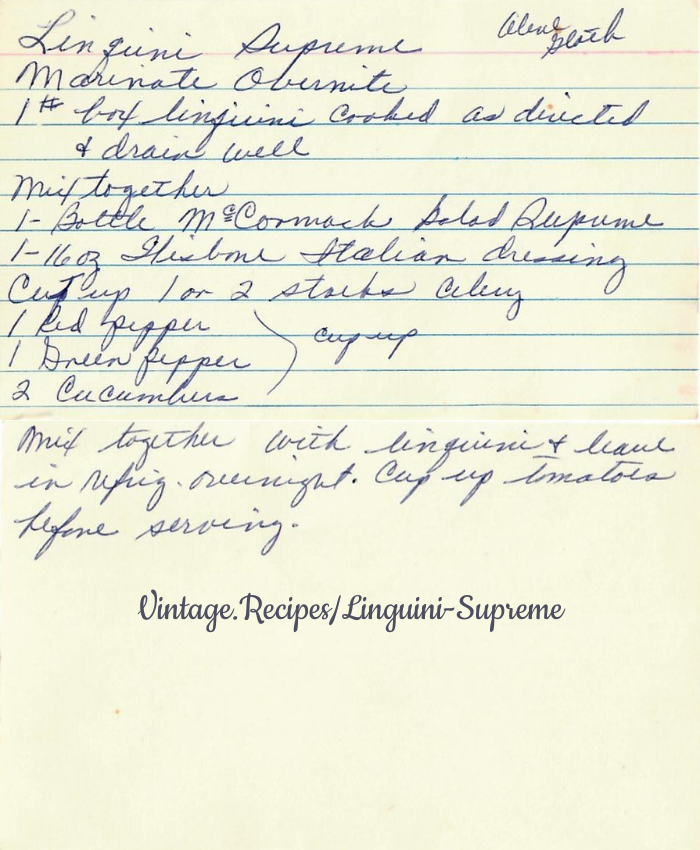 Linguini Supreme
Alene
Marinate Overnite
1# box linguini cooked as directed
& drain well
Mix together
1- Bottle McCormack Salad Supreme
1-16 oz Wisbone Italian dressing
Cut up 1 or 2 stocks Celery
1 Red pepper
1 Green pepper
cup up
2 Cucumbers
Mix together with linguini & leave
in refrig. overnight. Cup up tomatoes
before serving.
Vintage.Recipes/Linguini-Supreme